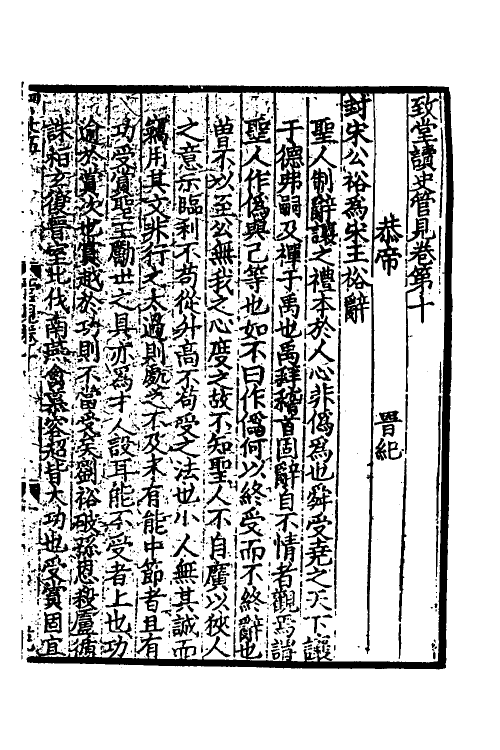 致堂讀史管見卷第十
恭帝　晉紀
封宋公裕為宋王裕辭
聖人制辭讓之禮本於人心非僞為也舜受堯之天下讓
于德弗嗣及禪于禹也禹拜稽首固辭自不情者觀焉謂
聖人作僞與己等也如不曰作僞何以終受而不終辭也
曽不以至公無我之心度之故不知聖人不自廣以狹人
之意示臨利不苟從升高不苟受之法也小人無其誠而
竊用其文非行之太過則處之不及未有能中節者且有
功受賞聖王勵世之具亦為才人設耳能不受者上也功
逾於賞次也賞越於功則不當受矣劉裕破孫恩殺盧循
誅桓玄復晉室北伐南燕禽慕容超皆大功也受賞固宜